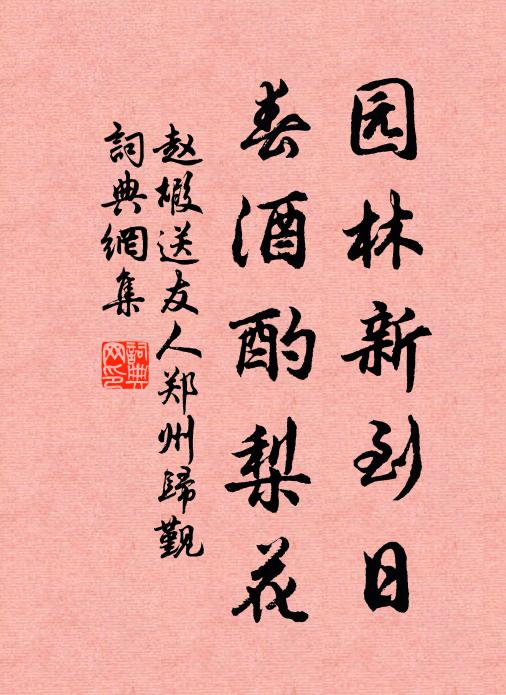 园林新到日
春酒酌梨花
赵嘏送友人郑州歸觐
詞典網集
詞典网印